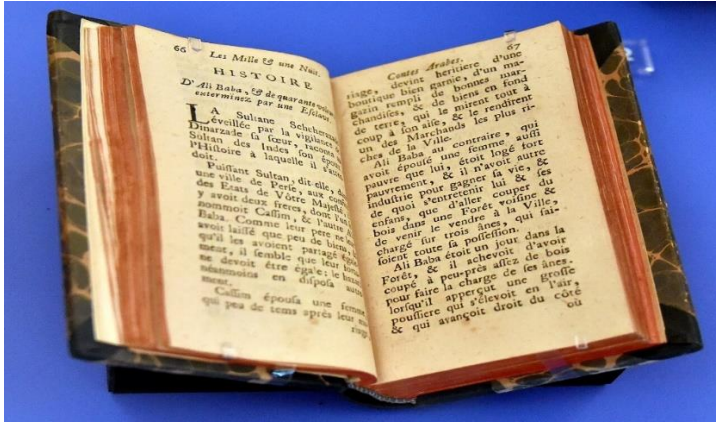 66 Les Mille & une Nuit.
HISTOIRE
D'Ali Baba, & de quarante
exterminez par une Esclave
LA Sultane
éveillée par la vigilance
Dinarzade sa sœur, raconta
Sultan des Indes son
l'Histoire à laquelle il
doit.
Puissant Sultan, dit-elle,
une ville de Perse, aux
des Etats de Vôtre Majesté,
y avoit deux freres, dont l'un
nommoit Cassim, & l'autre
Baba. Comme leur pere ne
avoit laissé que peu de biens,
qu'ils les avoient partagé
ment, il semble que leur
ne devoit être égale: le
néanmoins en disposa
ment.
Cassim épousa une femme
qui peu de tems après leur
Contes Arabes. 67
riage, devint heritiere d'une
boutique bien garnie, d'un ma-
gazin rempli de bonnes mar-
chandises, & de biens en fond
de terre, qui le mirent tout à
coup à son aise, & le rendirent
un des Marchands les plus ri-
ches de la Ville.
Ali Baba au contraire, qui
avoit épousé une femme, aussi
pauvre que lui, étoit logé fort
pauvrement, & il n'avoit autre
industrie pour gagner sa vie, &
de quoi s'entretenir lui & ses
enfans, que d'aller couper du
bois dans une Forêt voisine &
de venir le vendre à la Ville,
chargé sur trois ânes, qui fai-
soient toute sa possession.
Ali Baba étoit un jour dans la
Forêt, & il achevoit d'avoir
coupé à peu-près assez de bois
pour faire la charge de ses ânes.
lorsqu'il apperçut une grosse
poussiere qui s'élevoit en l'air,
& qui avançoit droit du côté
où